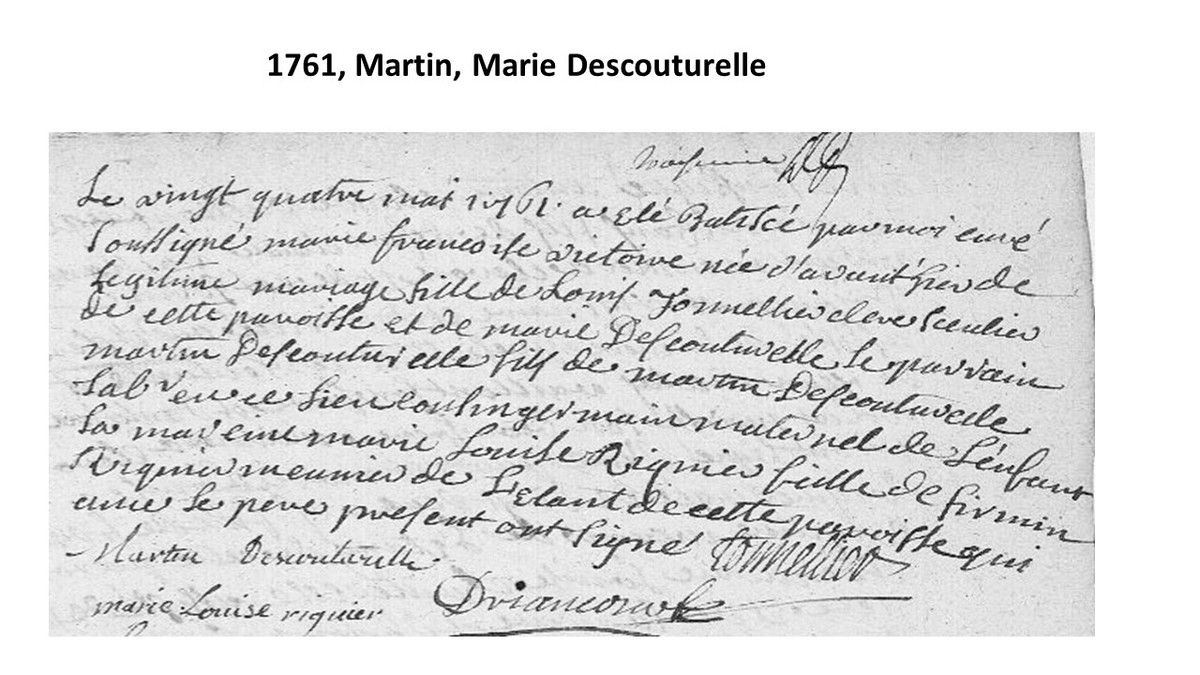 1761, Martin, Marie Descouturelle
Le vingt quatre mai 1761 a eté Batisée par moi curé
soussigné marie francoise victoire née d'avant'hier de
Legitime mariage fille de Louis Tonnellier clerc seculier
de cette paroisse et de marie Descouturelle Le parrain
martin Descouturelle fils de martin Descouturelle
Lab^r en ce Lieu cousin germain maternel de L'énfant
La mareine marie Louise Riquier fille de firmin
Riquier meunier de L'etant de cette paroisse qui
avec Le pere present ont signé Tonnellier
Martin Descouturelle
marie Louise riquier